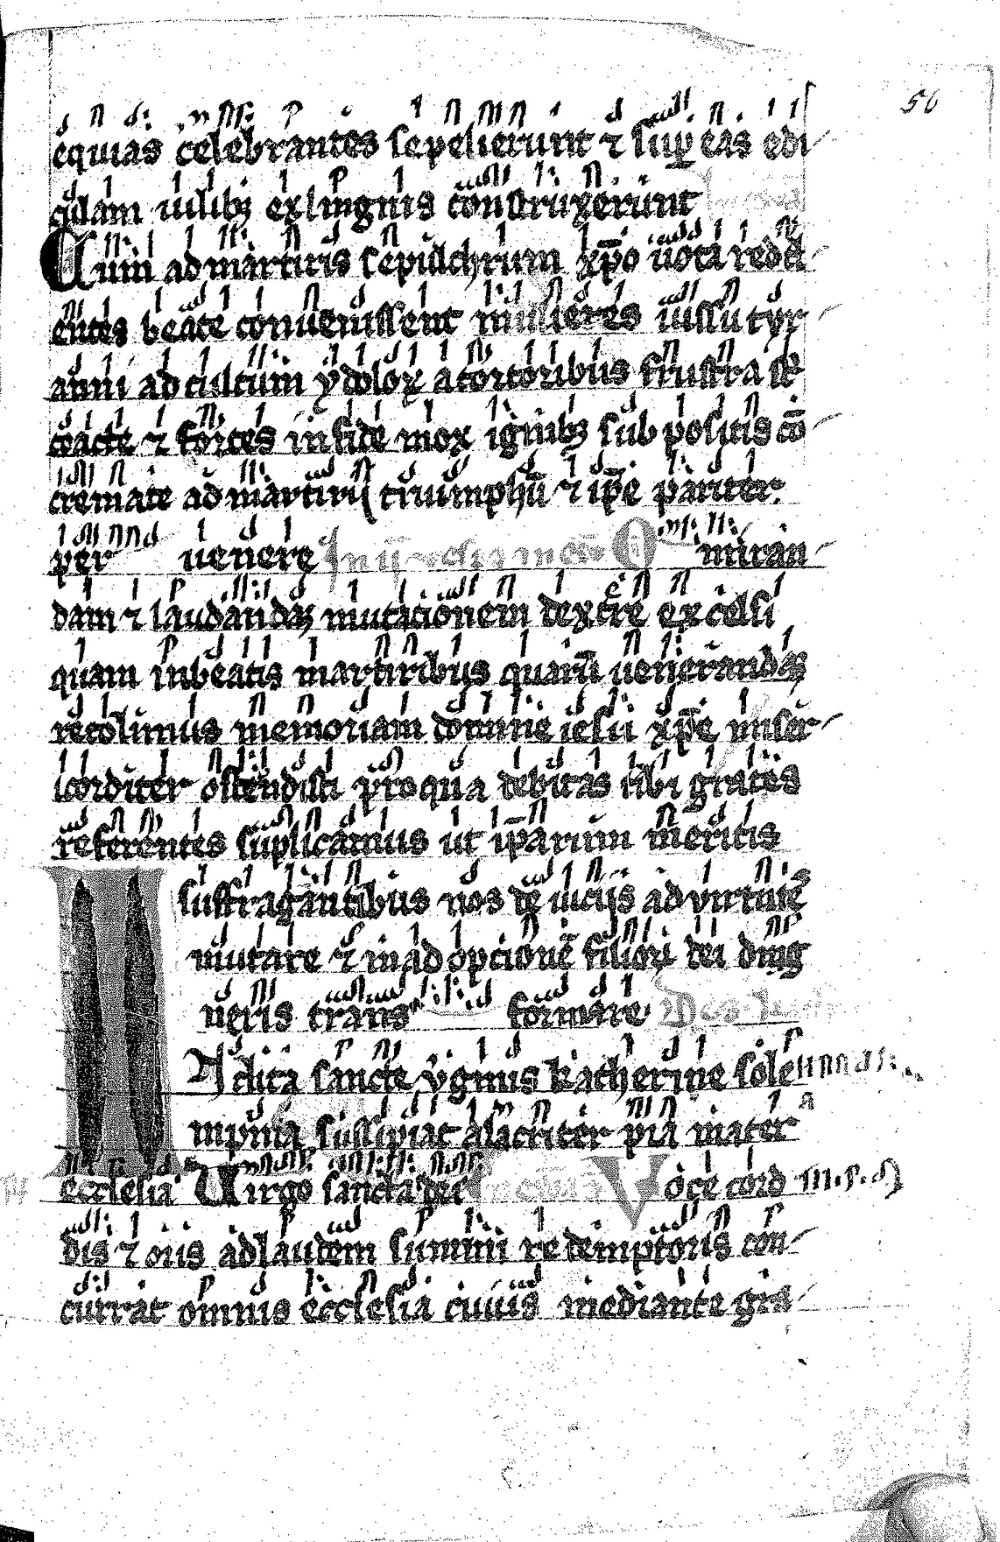 56
equias celebrantes sepelierunt ⁊ sup̱ eas edi
culam uilibꝫ ex lingnis construxerunt
Cum ad martiris sepulchrum xp̄o uota redd
entes beate conuenissent mulieres iussu tyr
anni ad cultum ydoloꝝ a tortoribus frustra st̄
coacte ⁊ fortes in fide mox ignibꝫ sub positis cō
cremate ad martirii triumphū ⁊ ip̄e pariter
per uenere O miran
dam ⁊ laudandaꝫ mutacionem dextre excelsi
quam in beatis martiribus quarū uenerandaꝫ
recolimus memoriam domine iesu xp̄e miser
icorditer ostendisti pro qua debitas tibi grates
referentes suplicamus ut ip̄arum meritis
suffragantibus nos de uiciis ad uirtutē
mutare ⁊ in adopcionē filioꝝ dei dig
neris trans formare
Inclita sancte v̓ginis katherine sole
mpnia suscipiat alacriter pia mater
ecclesia Uirgo sancta dei Voce cord
dis ⁊ oris ad laudem summi redemptoris con
currat omnis ecclesia cuius mediante gr̄a